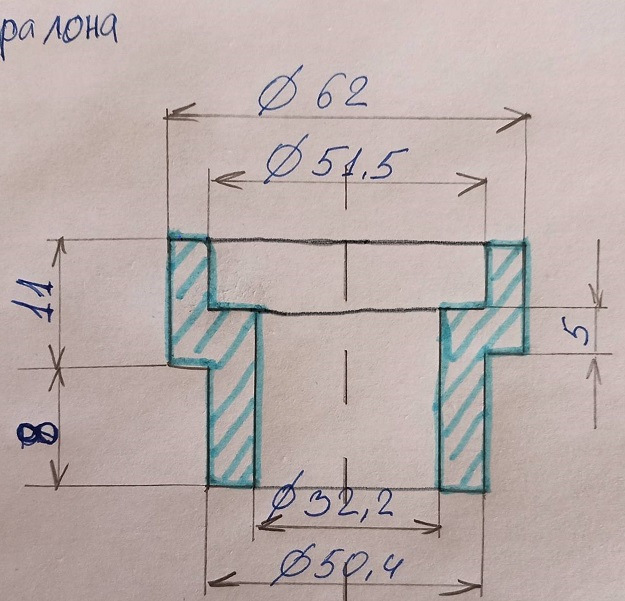 ралона
Ø 62
Ø 51.5
11
5
8
Ø32,2
Ø50,4